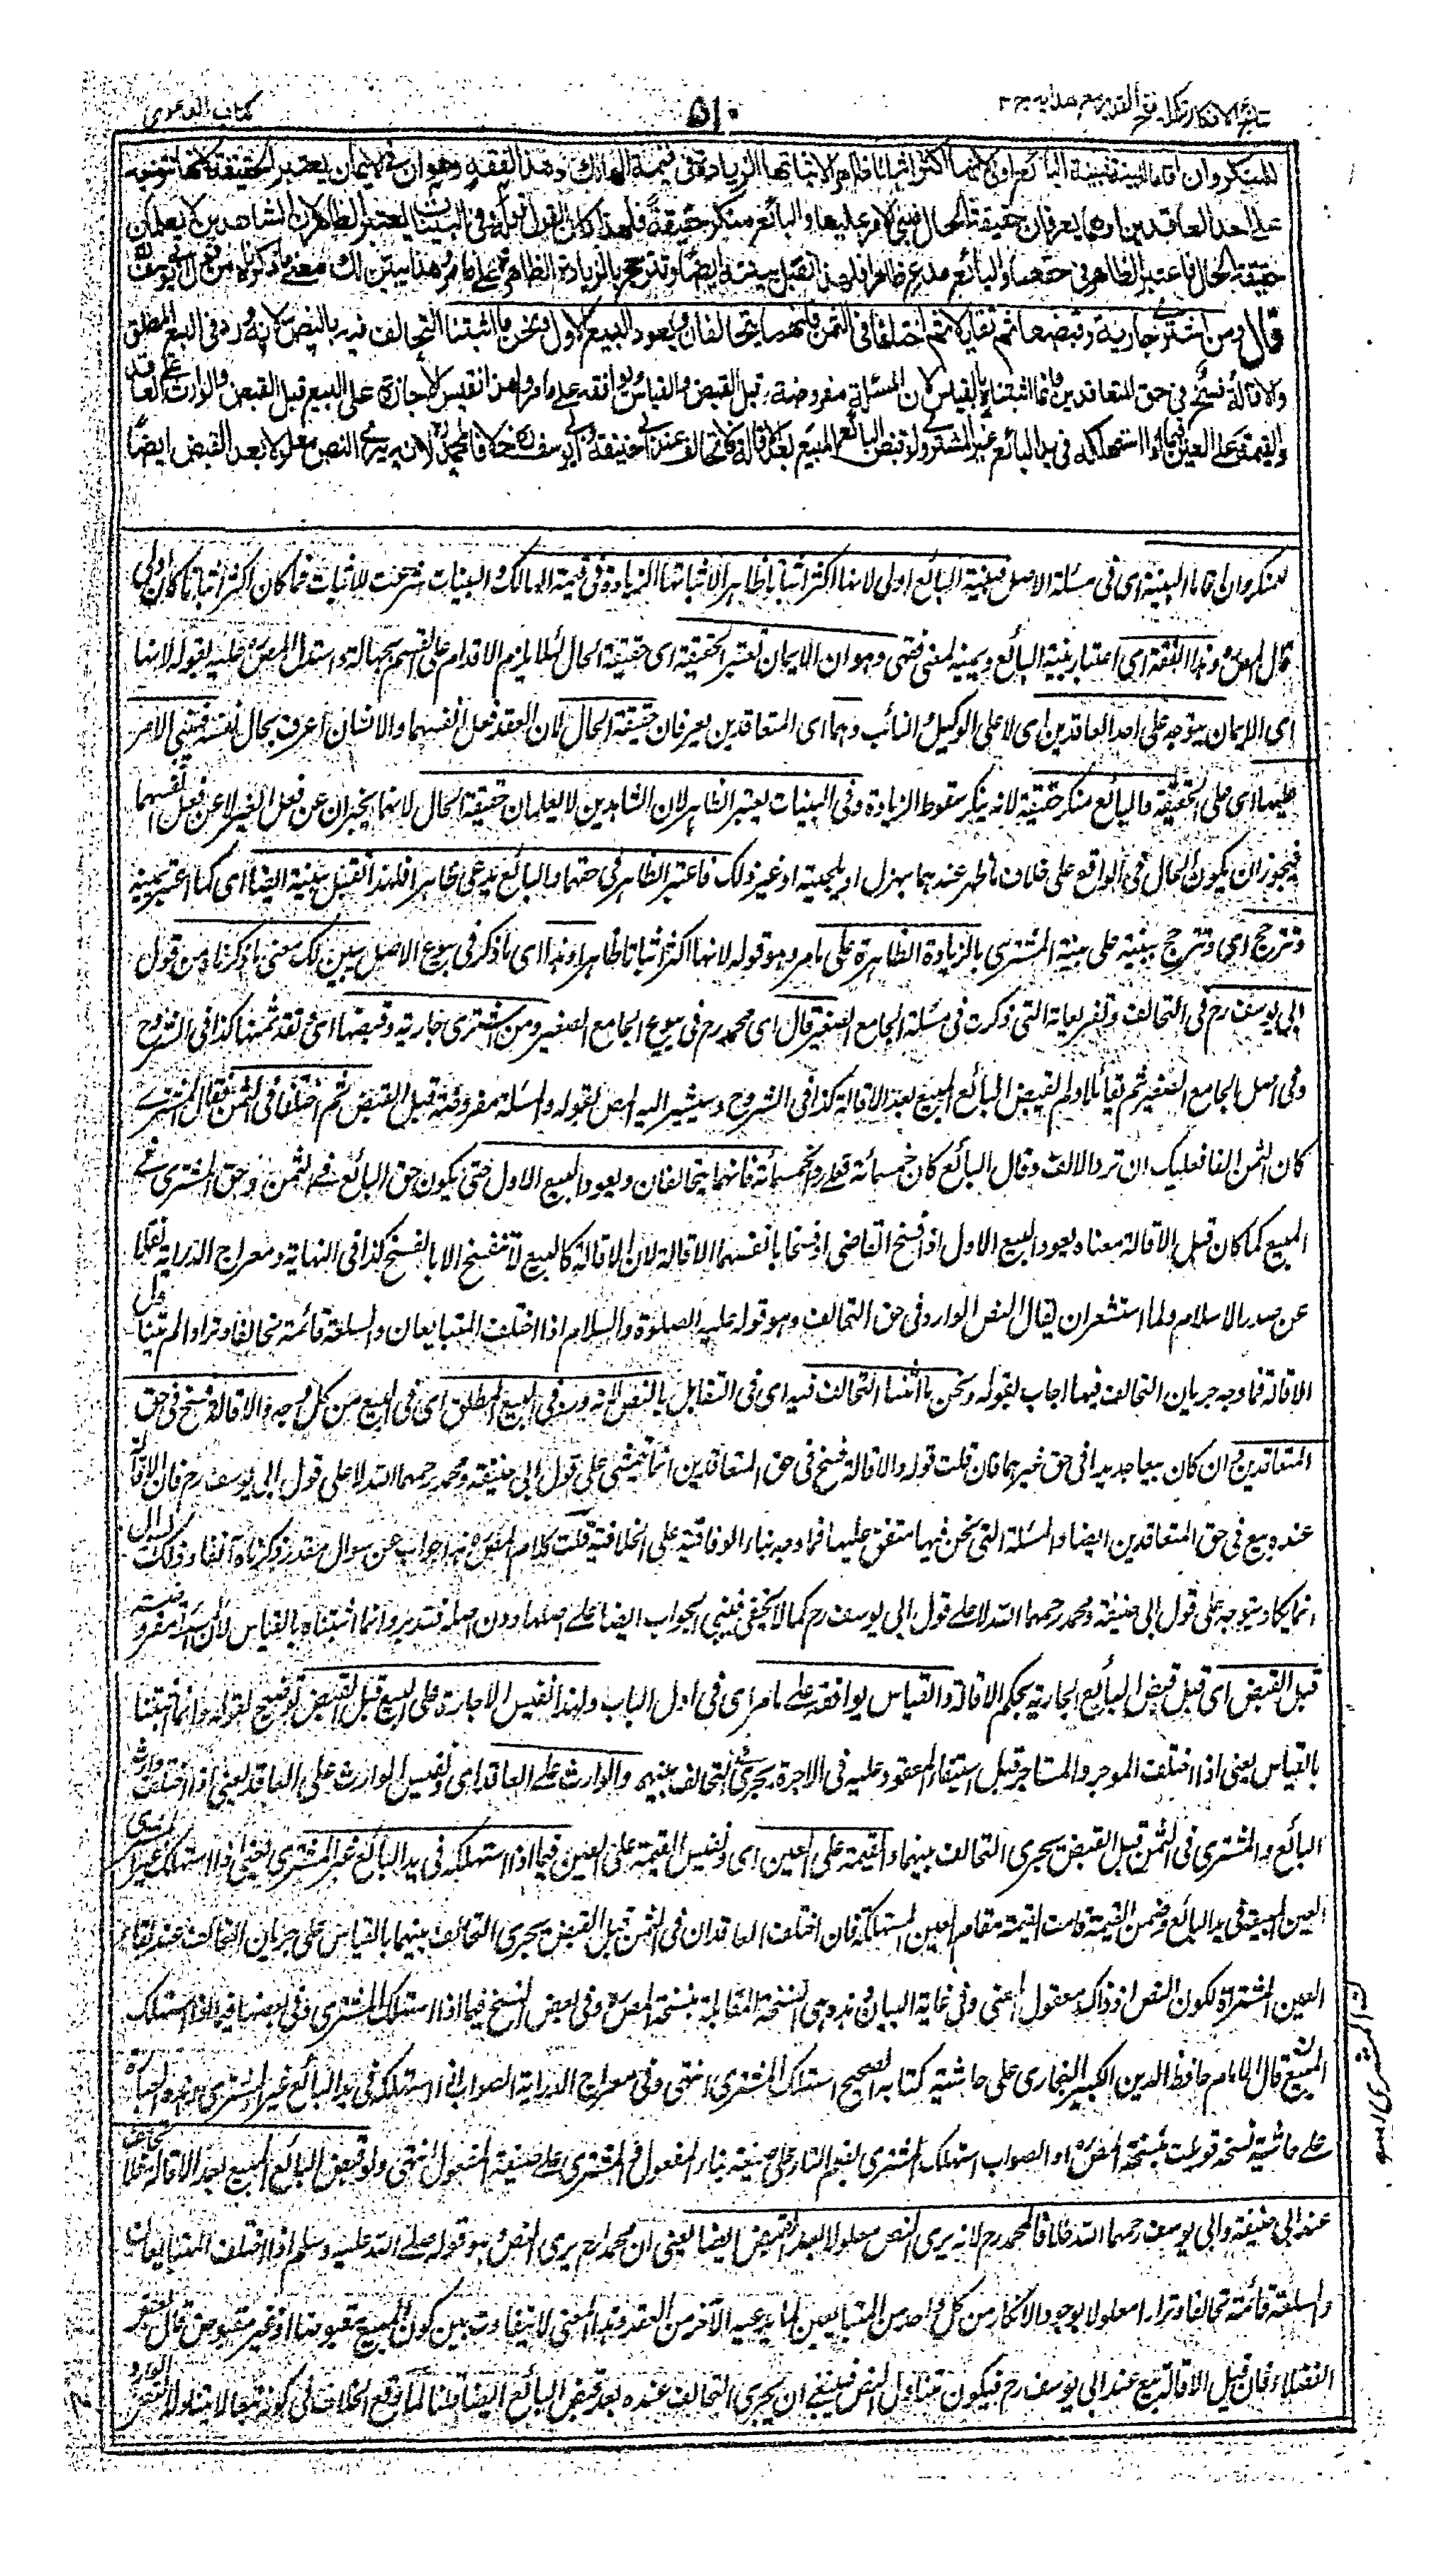 نتائج الافكار تكملة فتح القدير مع هدايه ج ٣
٥١٠
كتاب الدعوى
للمنكر وان اقاما البينة فبينة البائع اولى لانها اكثر اثباتا ظاهرا لاثباتها الزيادة في قيمة الهالك وهذا الفقه وهو ان في الايمان يعتبر الحقيقة لانها تتوجه
على احد العاقدين وهما يعرفان حقيقة الحال فبنى الامر عليها والبائع منكر حقيقة فلهذا كان القول قوله وفي البينات يعتبر الظاهر لان الشاهدين لا يعلمان
حقيقة الحال فاعتبر الظاهر في حقهما والبائع مدع ظاهرا فلهذا تقبل بينته ايضا وتترجح بالزيادة الظاهرة على ما مر وهذا يبين لك معنى ما ذكرناه من قول ابي يوسف
قال ومن اشترى جارية وقبضها ثم تقايلا ثم اختلفا في الثمن فانهما يتحالفان ويعود البيع الاول ونحن ما اثبتنا التحالف فيه بالنص لانه ورد في البيع المطلق
والاقالة فسخ في حق المتعاقدين وانما اثبتناه بالقياس لان المسئلة مفروضة قبل القبض والقياس يوافقه على ما مر ولهذا نقيس الاجارة على البيع قبل القبض والوارث على العاقد
والقيمة على العين فيما اذا استهلكه في يد البائع غير المشتري ولو قبض البائع المبيع بعد الاقالة فلا تحالف عند ابي حنيفة وابي يوسف خلافا لمحمد لانه يرى النص معلولا بعد القبض ايضا
للمنكر وان اقاما البينة اى فى مسئلة الاصل فبينة البائع اولى لانها اكثر اثباتا ظاهرا لاثباتها الزيادة فى قيمة الهالك والبينات شرعت للاثبات فما كان اكثر اثباتا كان اولى
قال المص وهذا الفقه اى اعتبار بينة البائع ويمينه لمعنى فقهى وهو ان الايمان تعتبر الحقيقة اى حقيقة الحال لئلا يلزم الاقدام على القسم بجهالة واستدل المص عليه بقوله لانها
اى الايمان يتوجه على احد العاقدين اى لا على الوكيل والنائب وهما اى المتعاقدين يعرفان حقيقة الحال لان العقد فعل انفسهما والانسان اعرف بحال نفسه فبنى الامر
عليها اى على الحقيقة والبائع منكر حقيقة لانه ينكر سقوط الزيادة وفى البينات يعتبر الظاهر لان الشاهدين لا يعلمان حقيقة الحال لانهما يخبران عن فعل الغير لا عن فعل انفسهما
فيجوز ان يكون الحال فى الواقع على خلاف ما ظهر عندهما بهزل او تلجية او غير ذلك فاعتبر الظاهر فى حقهما والبائع مدعى ظاهرا فلهذا تقبل بينته ايضا اى كما اعتبر يمينه
وتترجح اى وتترجح بينته على بينة المشترى بالزيادة الظاهرة على ما مر وهو قوله لانها اكثر اثباتا ظاهرا وهذا اى ما ذكر فى بيوع الاصل يبين لك معنى ما ذكرناه من قول
ابى يوسف رح فى التحالف وتفريعاته التى ذكرت فى مسئلة الجامع الصغير قال اى محمد رح فى بيوع الجامع الصغير ومن اشترى جارية وقبضها اى ونقد ثمنها كذا فى الشروح
وفى اصل الجامع الصغير ثم تقايلا ولم يقبض البائع المبيع بعد الاقالة كذا فى الشروح وسيشير اليه المص بقوله والمسئلة مفروضة قبل القبض ثم اختلفا فى الثمن فقال المشترى
كان الثمن الفا فعليك ان ترد الالف وقال البائع كان خمسمائة فعلى رد الخمسمائة فانهما يتحالفان ويعود البيع الاول حتى يكون حق البائع فى الثمن وحق المشترى فى
المبيع كما كان قبل الاقالة معناه يعود البيع الاول اذا فسخ القاضى او فسخا بانفسهما الاقالة لان الاقالة كالبيع لا تنفسخ الا بالفسخ كذا فى النهاية ومعراج الدراية نقلا
عن صدر الاسلام ولما استشعر ان يقال النص الوارد فى حق التحالف وهو قوله عليه الصلوة والسلام اذا اختلف المتبايعان والسلعة قائمة تحالفا وترادا لم يتناول
الاقالة فما وجه جريان التحالف فيها اجاب بقوله ونحن ما اثبتنا التحالف فيه اى فى التقايل بالنص لانه ورد فى البيع المطلق اى فى البيع من كل وجه والاقالة فسخ فى حق
المتعاقدين وان كان بيعا جديدا فى حق غيرهما فان قلت قوله والاقالة فسخ فى حق المتعاقدين انما يتمشى على قول ابى حنيفة ومحمد رحمهما الله لا على قول ابى يوسف رح فان الاقالة
عنده بيع فى حق المتعاقدين ايضا والمسئلة التى نحن فيها متفق عليها فما وجه بناء الوفاقية على الخلافية قلت كلام المص هذا جواب عن سوال مقدر ذكرناه آنفا وذلك السوال
انما يكاد يتوجه على قول ابى حنيفة ومحمد رحمهما الله لا على قول ابى يوسف رح كما لا يخفى فبنى الجواب ايضا على اصلهما دون اصله فتدبر وانما اثبتناه بالقياس لان المسئلة مفروضة
قبل القبض اى قبل قبض البائع الجارية بحكم الاقالة والقياس يوافقه على ما مر اى فى اول الباب ولهذا نقيس الاجارة على البيع قبل القبض توضيح لقوله وانما اثبتناه
بالقياس يعنى اذا اختلف الموجر والمستاجر قبل استيفاء المعقود عليه فى الاجرة يجرى التحالف بينهم والوارث على العاقد اى ونقيس الوارث على العاقد يعنى اذا اختلف وارث
البائع والمشترى فى الثمن قبل القبض يجرى التحالف بينهما والقيمة على العين اى ونقيس القيمة على العين فيما اذا استهلكه فى يد البائع غير المشترى يعنى اذا استهلك غير المشترى
العين المبيعة فى يد البائع وضمن القيمة قامت القيمة مقام العين المستهلكة فان اختلف العاقدان فى الثمن قبل القبض يجرى التحالف بينهما بالقياس على جريان التحالف عند بقاء
العين المشتراة لكون النص اذ ذاك معقول المعنى وفى غاية البيان هذه هى النسخة المقابلة بنسخة المص وفى بعض النسخ فيما اذا استهلك المشترى وفى بعضها فيما اذا استهلك
المبيع قال الامام حافظ الدين الكبير البخارى على حاشية كتابه الصحيح استهلك المشترى انتهى وفى معراج الدراية الصواب اذا استهلكه فى يد البائع غير المشترى وهذه العبارة
على حاشية نسخة قوبلت بنسخة المص او الصواب استهلك المشترى بضم التاء على صيغة بناء المفعول فى المشترى على صيغة المفعول انتهى ولو قبض البائع المبيع بعد الاقالة فلا تحالف
عند ابى حنيفة وابى يوسف رحمهما الله خلافا لمحمد رح لانه يرى النص معلولا بعد القبض ايضا يعنى ان محمدا رح يرى النص وهو قوله صلى الله عليه وسلم اذا اختلف المتبايعان
والسلعة قائمة تحالفا وترادا معلولا بوجود الانكار من كل واحد من المتبايعين لما يدعيه الآخر من العقد وهذا المعنى لا يتفاوت بين كون المبيع مقبوضا او غير مقبوض قال بعض
الفضلاء فان قيل الاقالة بيع عند ابى يوسف رح فيكون متناول النص فينبغى ان يجرى التحالف عنده بعد قبض البائع ايضا قلنا لما وقع الخلاف فى كونه بيعا لا يتناوله النص الوارد